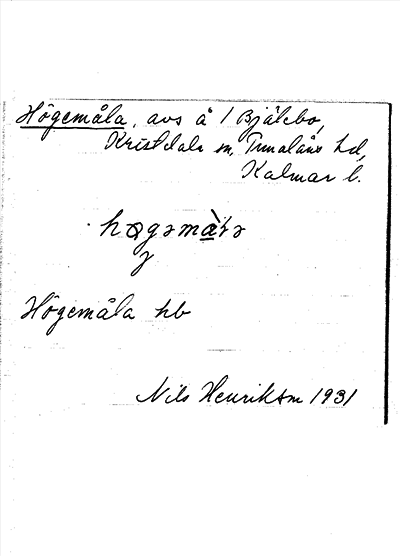 Högemåla, avs å 1 Bjälebo,
Kristdala sn, Tunaläns hd,
Kalmar l.
Högemåla hb
Nils Henrikson 1931